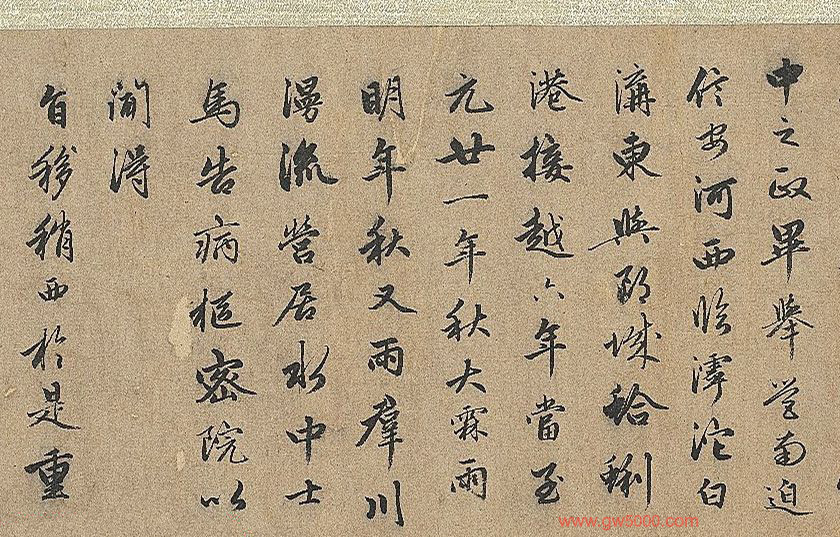 中之政畢舉營南迫
信安河西臨滹沱白
溝東與郎城蛤蜊
港接越六年當至
元廿一年秋大霖雨
明年秋又雨群川
漫流營居水中士
馬告病樞密院以
聞得
旨移稍西於是重
www.gw5000.com